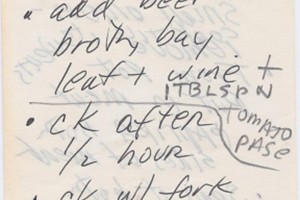 • add beef
broth, bay
leaf + wine +
1 TBLSPN
TOMATO
PASE
• ck after
1/2 hour
• ck w/ fork